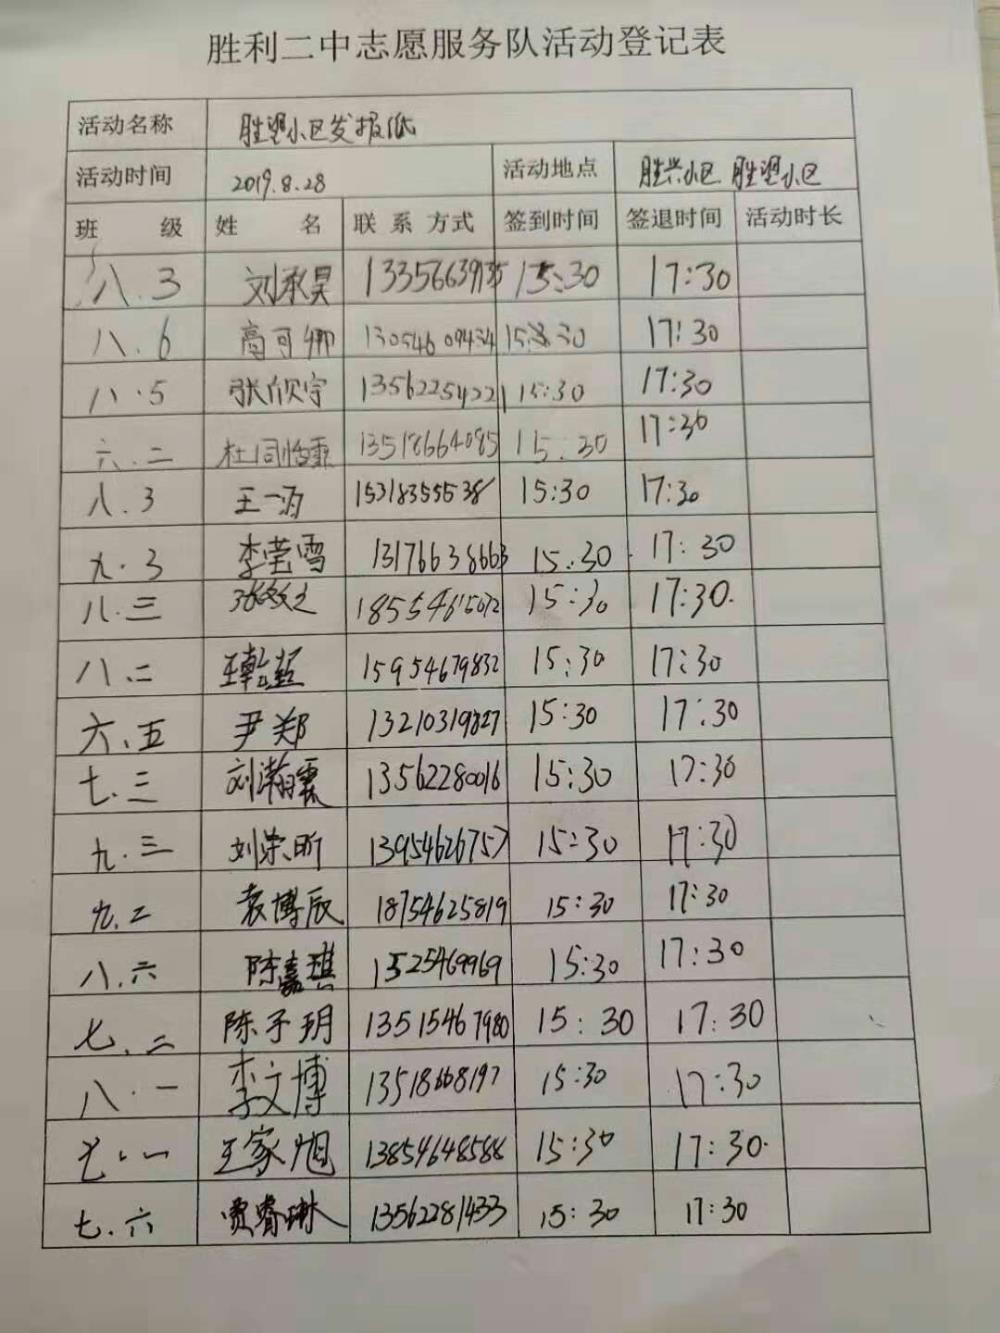 胜利二中志愿服务队活动登记表
活动名称 胜望小区发报纸
活动时间 2019.8.28 活动地点 胜兴小区 胜望小区
班 级 姓 名 联系方式 签到时间 签退时间 活动时长
八.3 刘承昊 15:30 17:30
八.6 高可 13054609434 15:30 17:30
八.5 张欣宇 13562254221 15:30 17:30
六.二 杜 13518664085 15:30 17:30
八.3 王一涵 15318355538 15:30 17:30
九.3 李莹雪 13176638663 15:30 17:30
八.三 15:30 17:30.
八.二 王乾 15954679832 15:30 17:30
六.五 尹郑 13210319827 15:30 17:30
七.三 刘瀚霖 13562280016 15:30 17:30
九.三 刘荣昕 13954626757 15:30 17:30
九.二 袁博辰 18754625819 15:30 17:30
八.六 陈嘉琪 15:30 17:30
七.二 陈子玥 13515467980 15:30 17:30
八.一 李文博 13518668197 15:30 17:30
七.一 王家旭 13854648588 15:30 17:30.
七.六 贾睿琳 13562281433 15:30 17:30